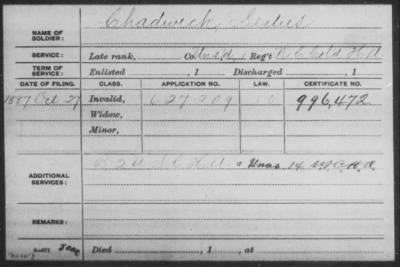 NAME OF SOLDIER: Chadwick,
SERVICE: Late rank, Co. Reg't
TERM OF SERVICE: Enlisted , 1 Discharged , 1
DATE OF FILING. CLASS. APPLICATION NO. CERTIFICATE NO.
1887 Oct. 27 Invalid, 627209 996,472
Widow,
Minor,
ADDITIONAL SERVICES: & Unas. 14
REMARKS:
Died , 1 , at